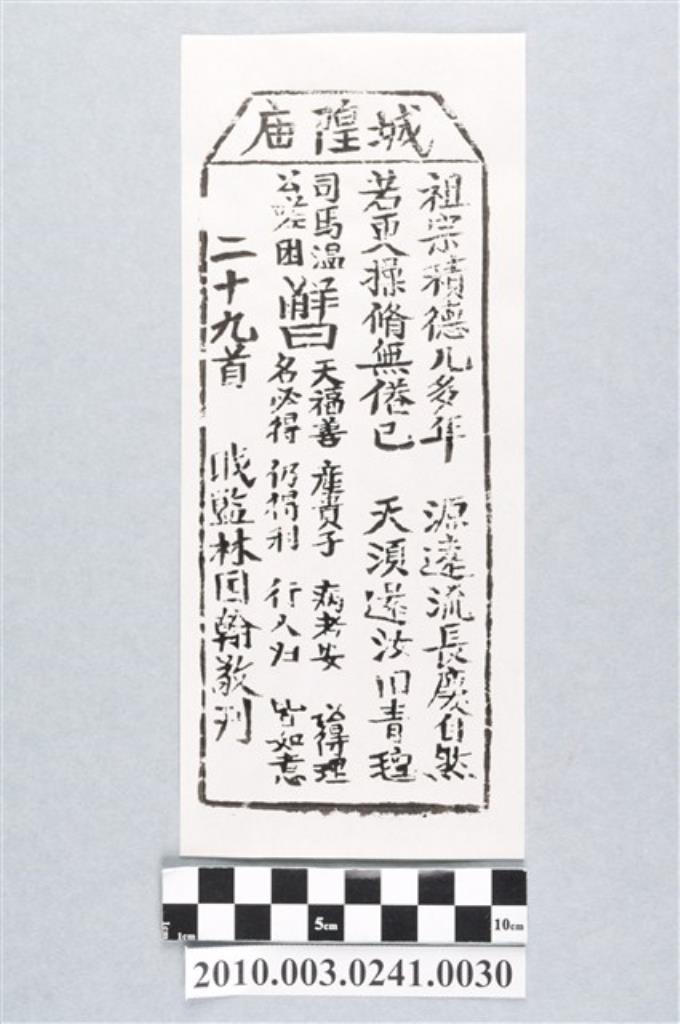 城隍庙
祖宗積德几多年 源遠流長慶自然
若更操脩無倦已 天須還汝旧青氊
司馬温 天福善 産貴子 病者安 訟得理
公嗟困 名必得 仍獲利 行人归 皆如意
解曰
二十九首 戝監林国翰敬刋
5cm 10cm
1cm
2010.003.0241.0030